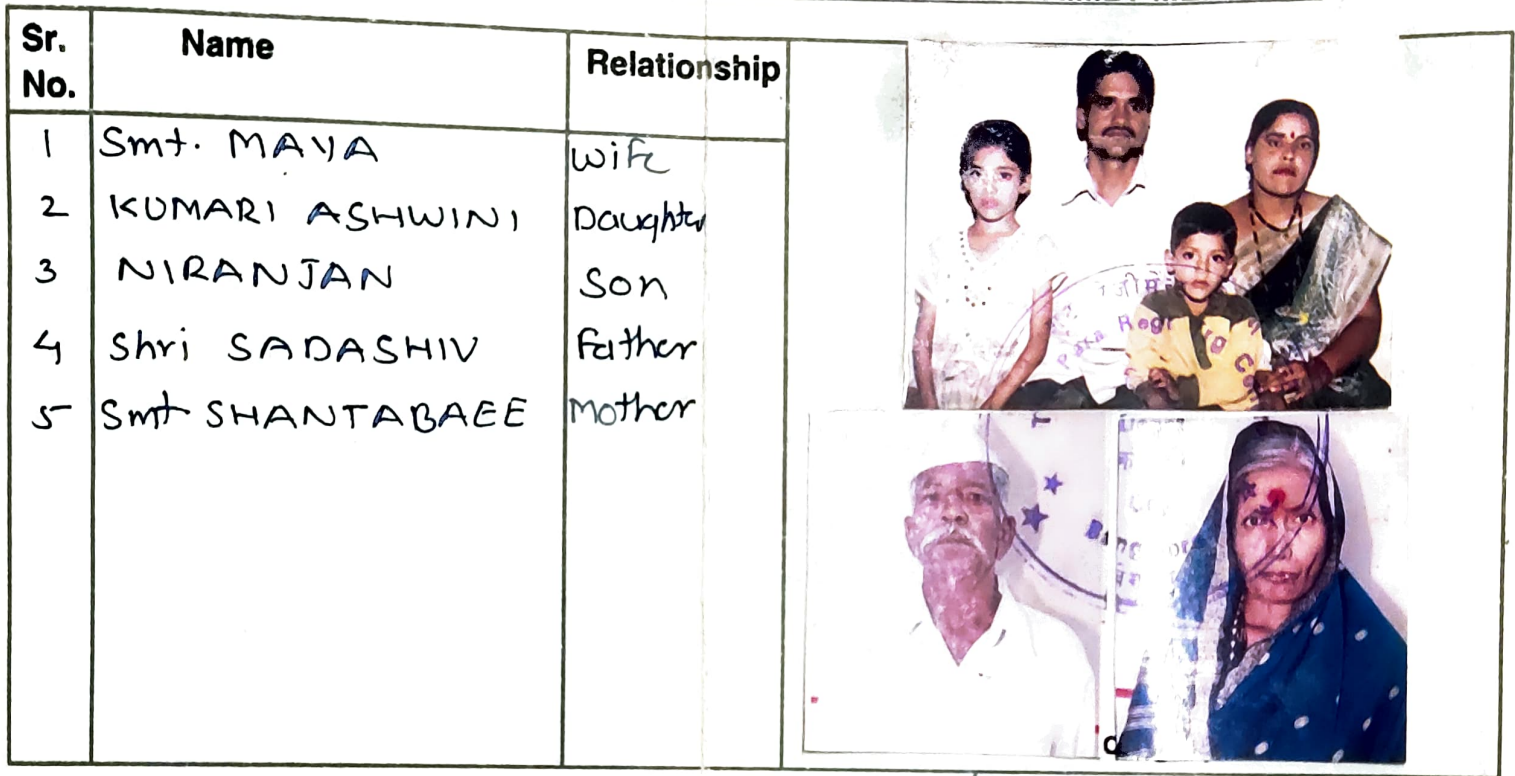 Sr. No. Name Relationship
1 Smt. MAYA Wife
2 KUMARI ASHWINI Daughter
3 NIRANJAN Son
4 Shri SADASHIV Father
5 Smt SHANTABAEE Mother
Para Reg